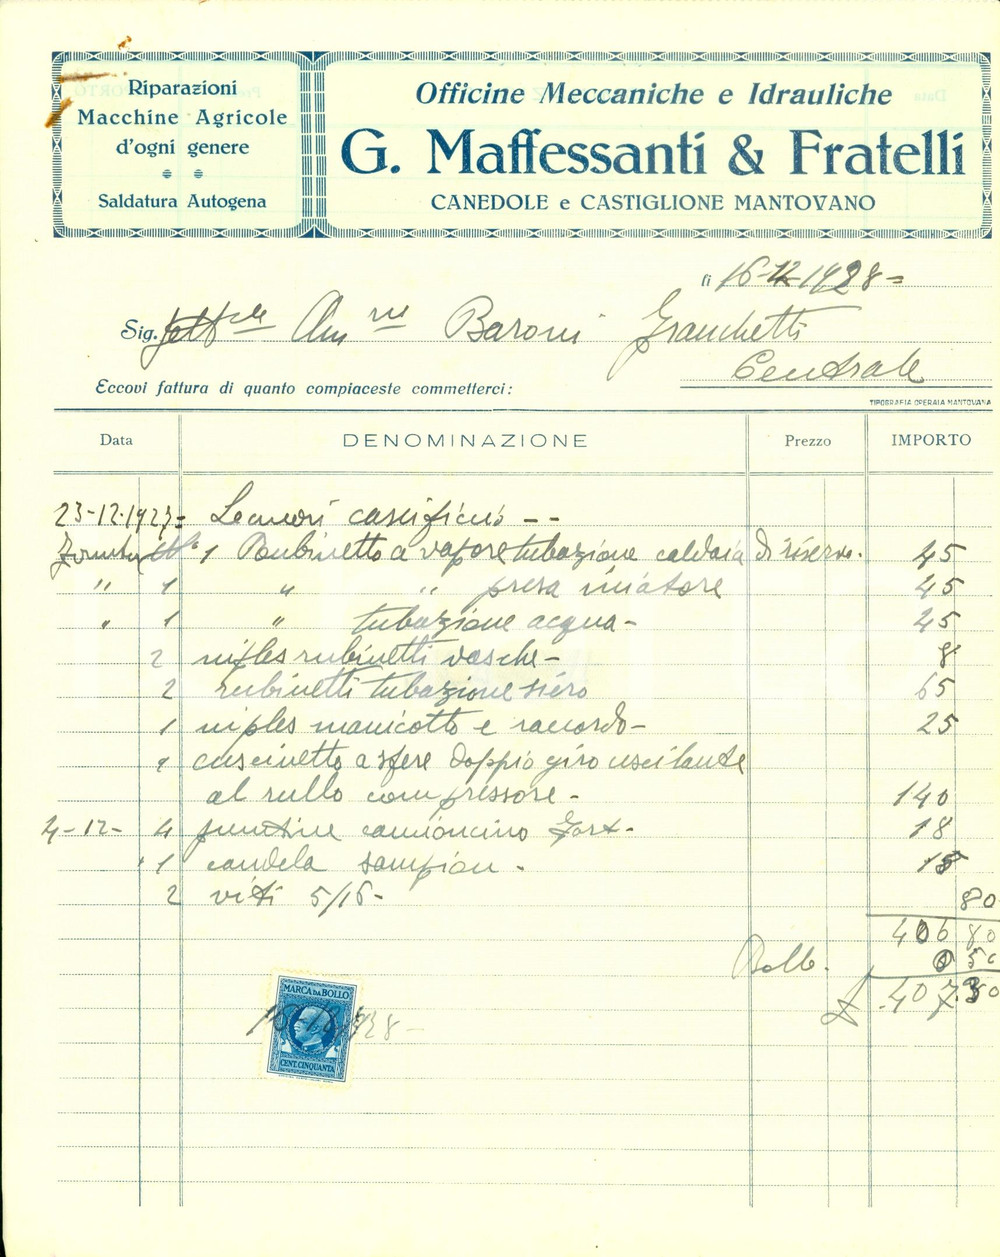 Riparazioni
Macchine Agricole
d'ogni genere
Saldatura Autogena
Officine Meccaniche e Idrauliche
G. Maffessanti & Fratelli
CANEDOLE e CASTIGLIONE MANTOVANO
li 16-12-1928=
Sig. Baroni Franchetti
Centrale
Eccovi fattura di quanto compiaceste commetterci:
TIPOGRAFIA OPERAIA MANTOVANA
Data DENOMINAZIONE Prezzo IMPORTO
23-12-1927= Lavori caseificio --
1 Rubinetto a vapore tubazione caldaia di riserva. 45
" 1 " " presa iniatore 45
" 1 " tubazione acqua- 45
2 nifles rubinetti vasche- 8
2 rubinetti tubazione siero 65
1 niples manicotto e racordo- 25
cuscinetto a sfere doppio giro uscilante
al rullo compressore- 140
4-12- 4 puntine camioncino Fort- 18
1 candela sampion- 15
2 viti 5/16- 80
406 80
Bollo. 0 50
£ 407.30
MARCA DA BOLLO
CENT. CINQUANTA